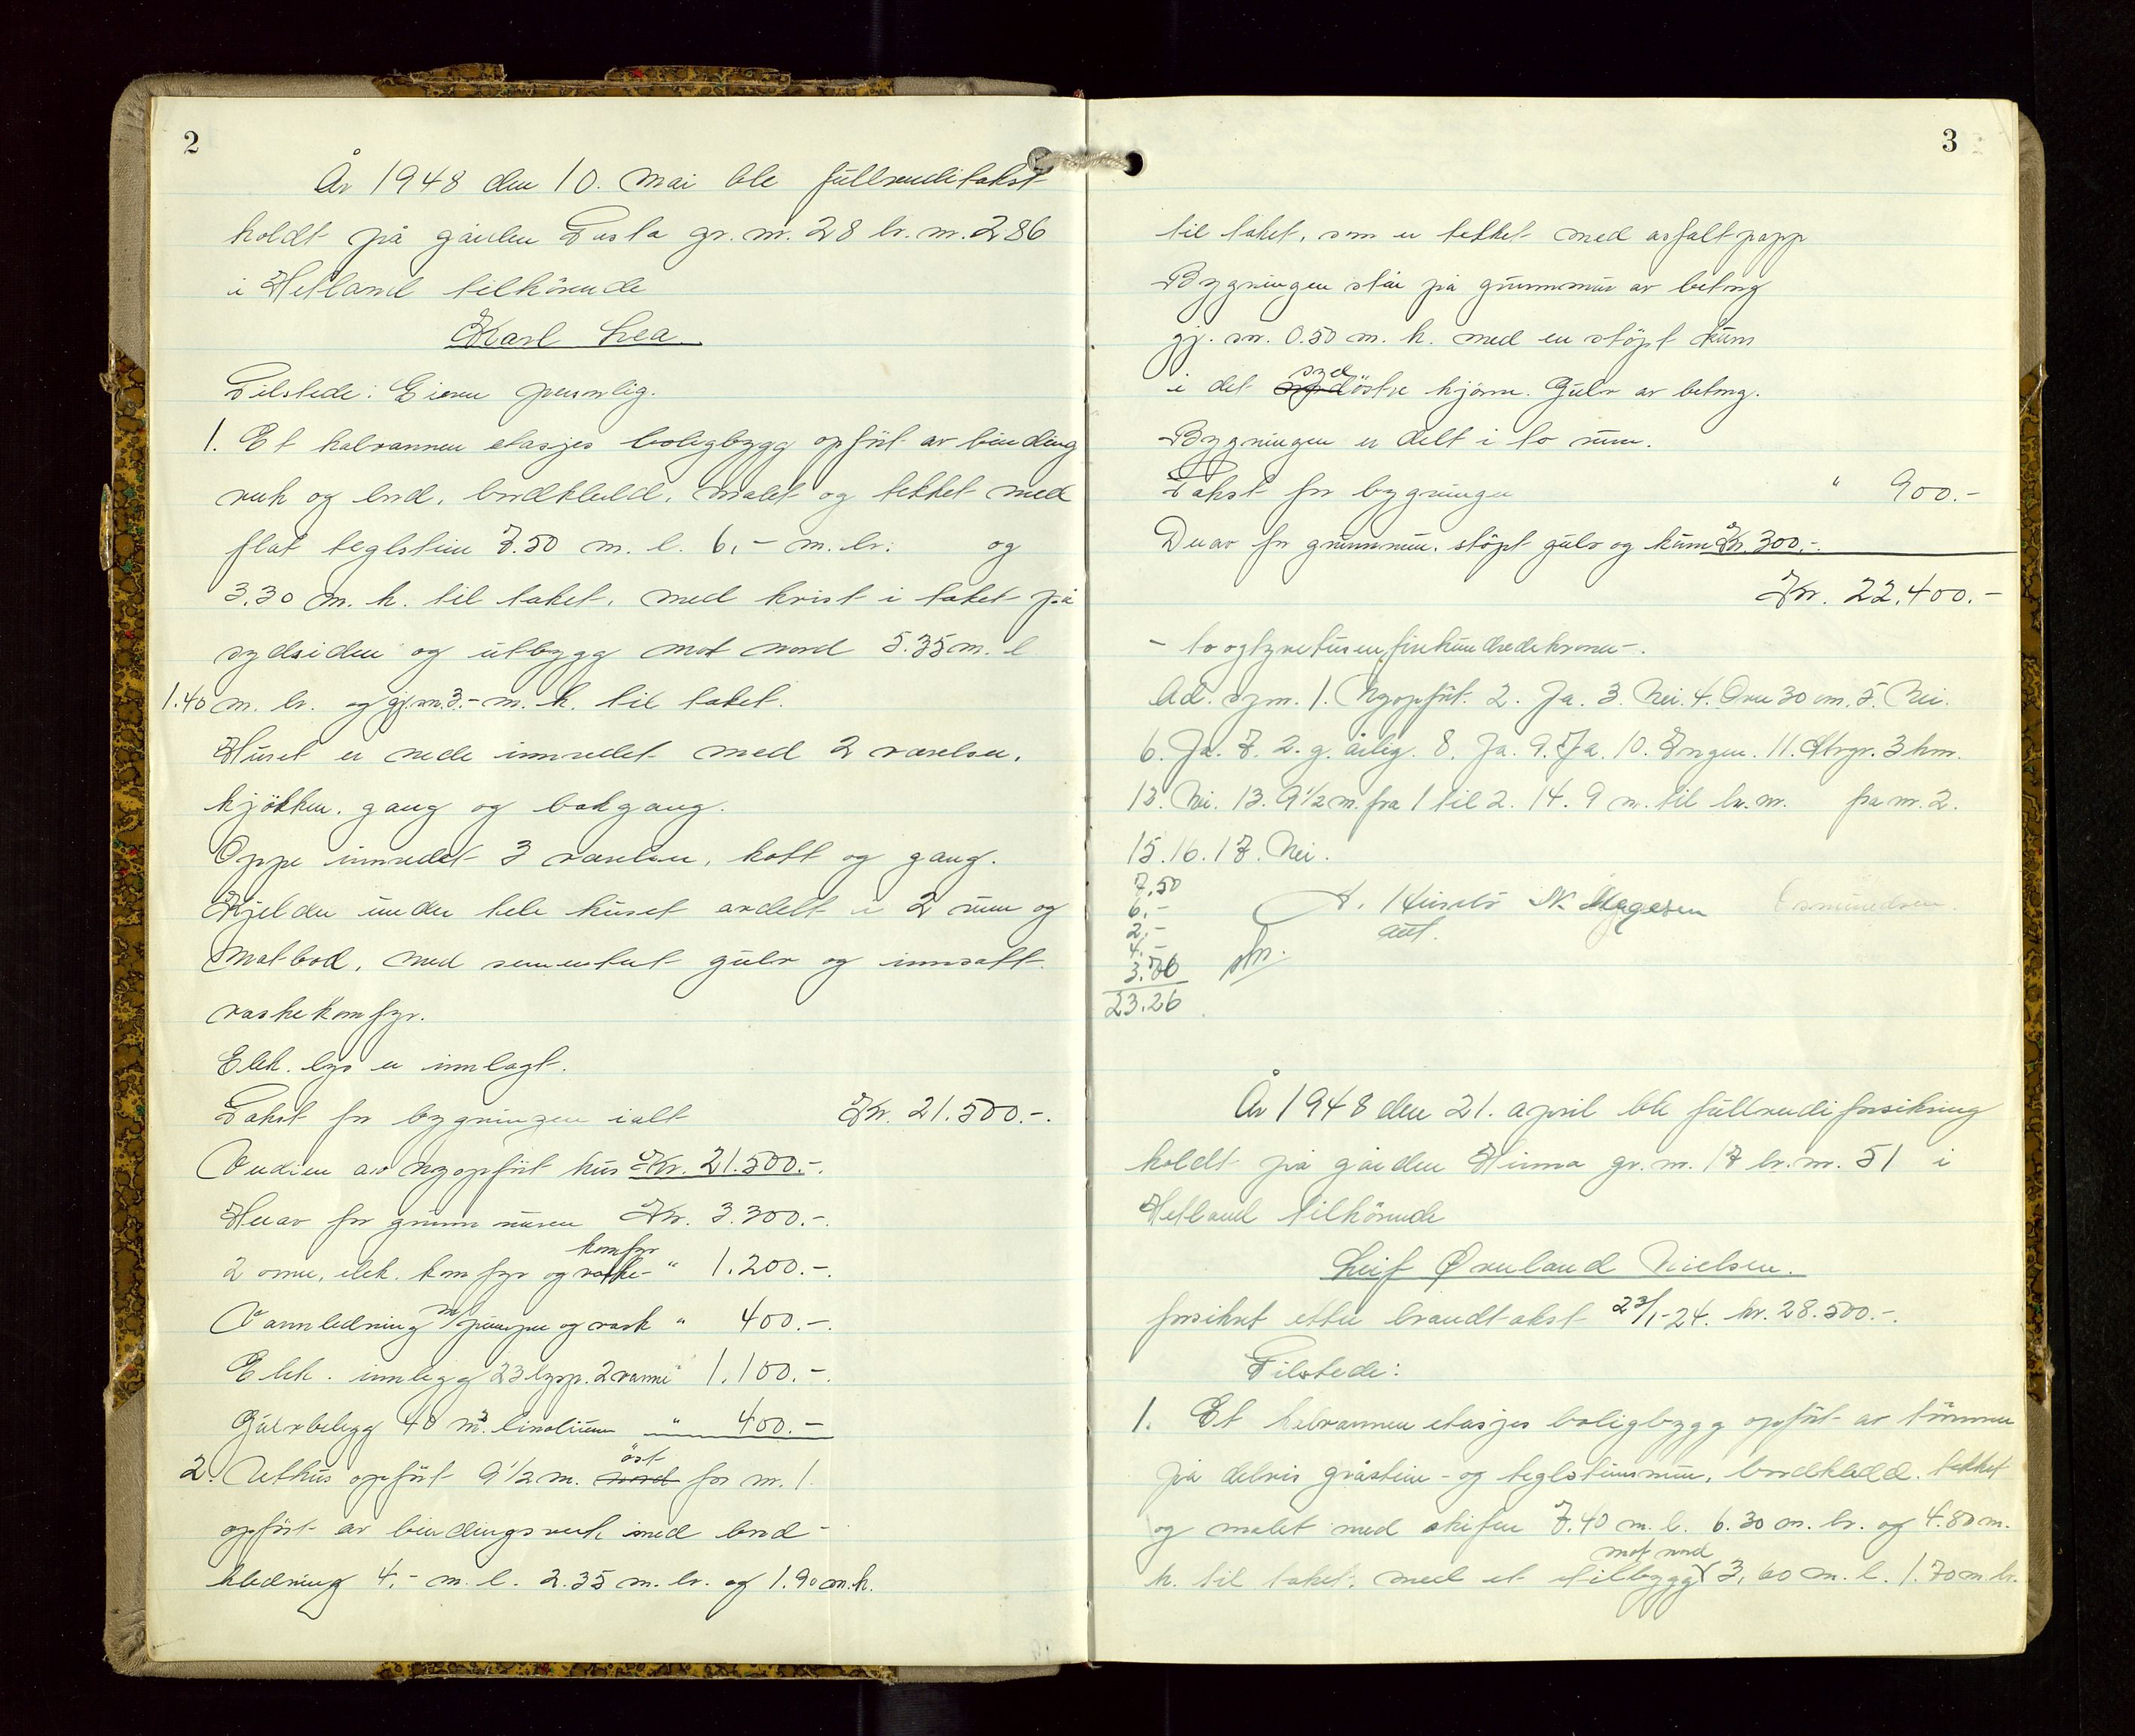 2
År 1948 den 10. mai ble fullverditakst
holdt på gården Tasta gr. nr. 28 br. nr. 286
i Hetland tilhörende
Karl Lea
Tilstede: Eieren personlig.
1. Et halvannen etasjes boligbygg opfört av binding
verk og bord, bordkledd, malet og tekket med
flat teglstein 7.50 m. l. 6.- m. br. og
3.30 m. h. til taket, med kvist i taket på
sydsiden og utbygg mot nord 5.35 m. l
1.40 m. br. og gj.sn. 3.- m. h. til taket.
Huset er nede innredet med 2 værelser,
kjökken, gang og bakgang.
Oppe innredet 3 værelser, kott og gang.
Kjelder under hele huset avdelt i 2 rum og
matbod, med sementert gulv og innsatt
vaskekomfyr.
Elek. lys er innlagt.
Takst for bygningen ialt Kr. 21.500.-.
Verdien av nyopfört hus Kr. 21.500.-.
Herav for grunnmuren Kr. 3.300.-.
komfyr
2 ovner, elek. komfyr og vaske- " 1.200.-.
Vannledning m/ pumpe og vask " 400.-.
Elek. innlegg 23 lysp. 2 varme " 1.100.-.
Gulvbelegg 40 m². linolium " 400.-
öst
2. Uthus opfört 9 1/2 m. nord for nr. 1.
opfört av bindingsverk med bord-
kledning 4.- m. l. 2.35 m. br. og 1.90 m. h.
3
til taket, som er tekket med asfaltpapp
Bygningen står på grunnmur av betong
gj. sn. 0.50 m. h. med en stöpt kum
syd
i det nordöstre hjörne. Gulv av betong.
Bygningen er delt i to rum.
Takst for bygningen " 900.-
Derav for grunnmur, stöpt gulv og kum Kr. 300.-.
Kr. 22.400.-
- toogtyvetusenfirehundredekroner-.
Ad. spm. 1. Nyopfört. 2. Ja. 3. Nei. 4. Over 30 cm. 5. Nei.
6. Ja. 7. 2. g. årlig. 8. Ja. 9. Ja. 10. Ingen. 11. Strgr. 3 km.
12. Nei. 13. 9 1/2 m. fra 1 til 2. 14. 9 m. til br. nr. fra nr. 2.
15. 16. 17. Nei.
7.50
6.-
2.-
4.-
3.76
23.26
A. Husebö N. Magesen Osmundsen.
aut.
År 1948 den 21. april ble fullverdiforsikring
holdt på gården Hinna gr. nr. 17 br. nr. 51 i
Hetland tilhörende
Leif Øverland Nielsen.
forsikret etter branntakst 23/1-24. kr. 28.500.-.
Tilstede:
1. Et halvannen etasjes boligbygg opfört av tömmer
på delvis gråstein- og teglsteinsmur, bordkledd, tekket
og malet med skifer 7.40 m. l. 6.30 m. br. og 4.80 m.
mot nord
h. til taket, med et tilbygg 3.60 m. l. 1.70 m. br.